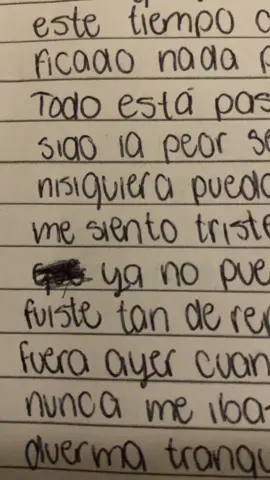 este tiempo
ficado nada
Todo está pas
sido la peor se
nisiquiera puedo
me siento triste
ya no pue
fuiste tan de re
fuera ayer cuan
nunca me iba
duerma tranqu